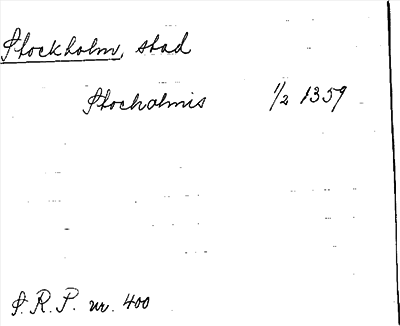 Stockholm, stad
Stocholmis 1/2 1359
S.R.P. nr. 400